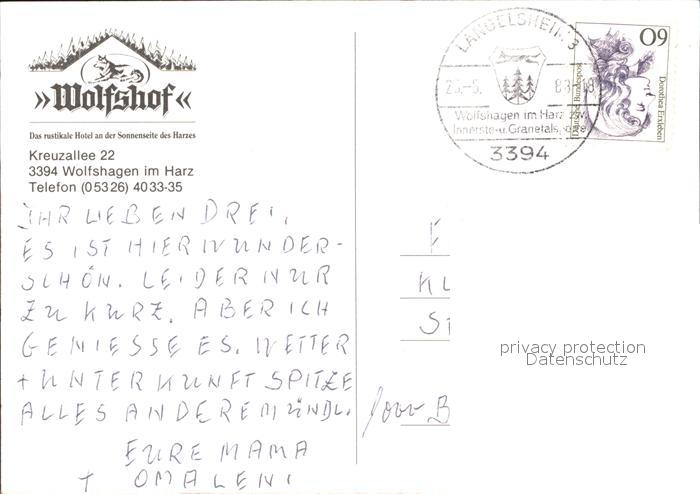 »Wolfshof«
Das rustikale Hotel an der Sonnenseite des Harzes
Kreuzallee 22
3394 Wolfshagen im Harz
Telefon (05326) 4033-35
IHR LIEBEN DREI,
ES IST HIER WUNDER-
SCHÖN. LEIDER NUR
ZU KURZ. ABER ICH
GENIESSE ES. WETTER
+ UNTERKUNFT SPITZE
ALLES ANDERE MÜNDL.
EURE MAMA
+ OMA LENI
LANGELSHEIM 3
Wolfshagen im Harz
Innerste-u. Granetalsperre
3394
60
Deutsche Bundespost
Dorothea Erxleben
E
KL
St
1000 B
privacy protection
Datenschutz